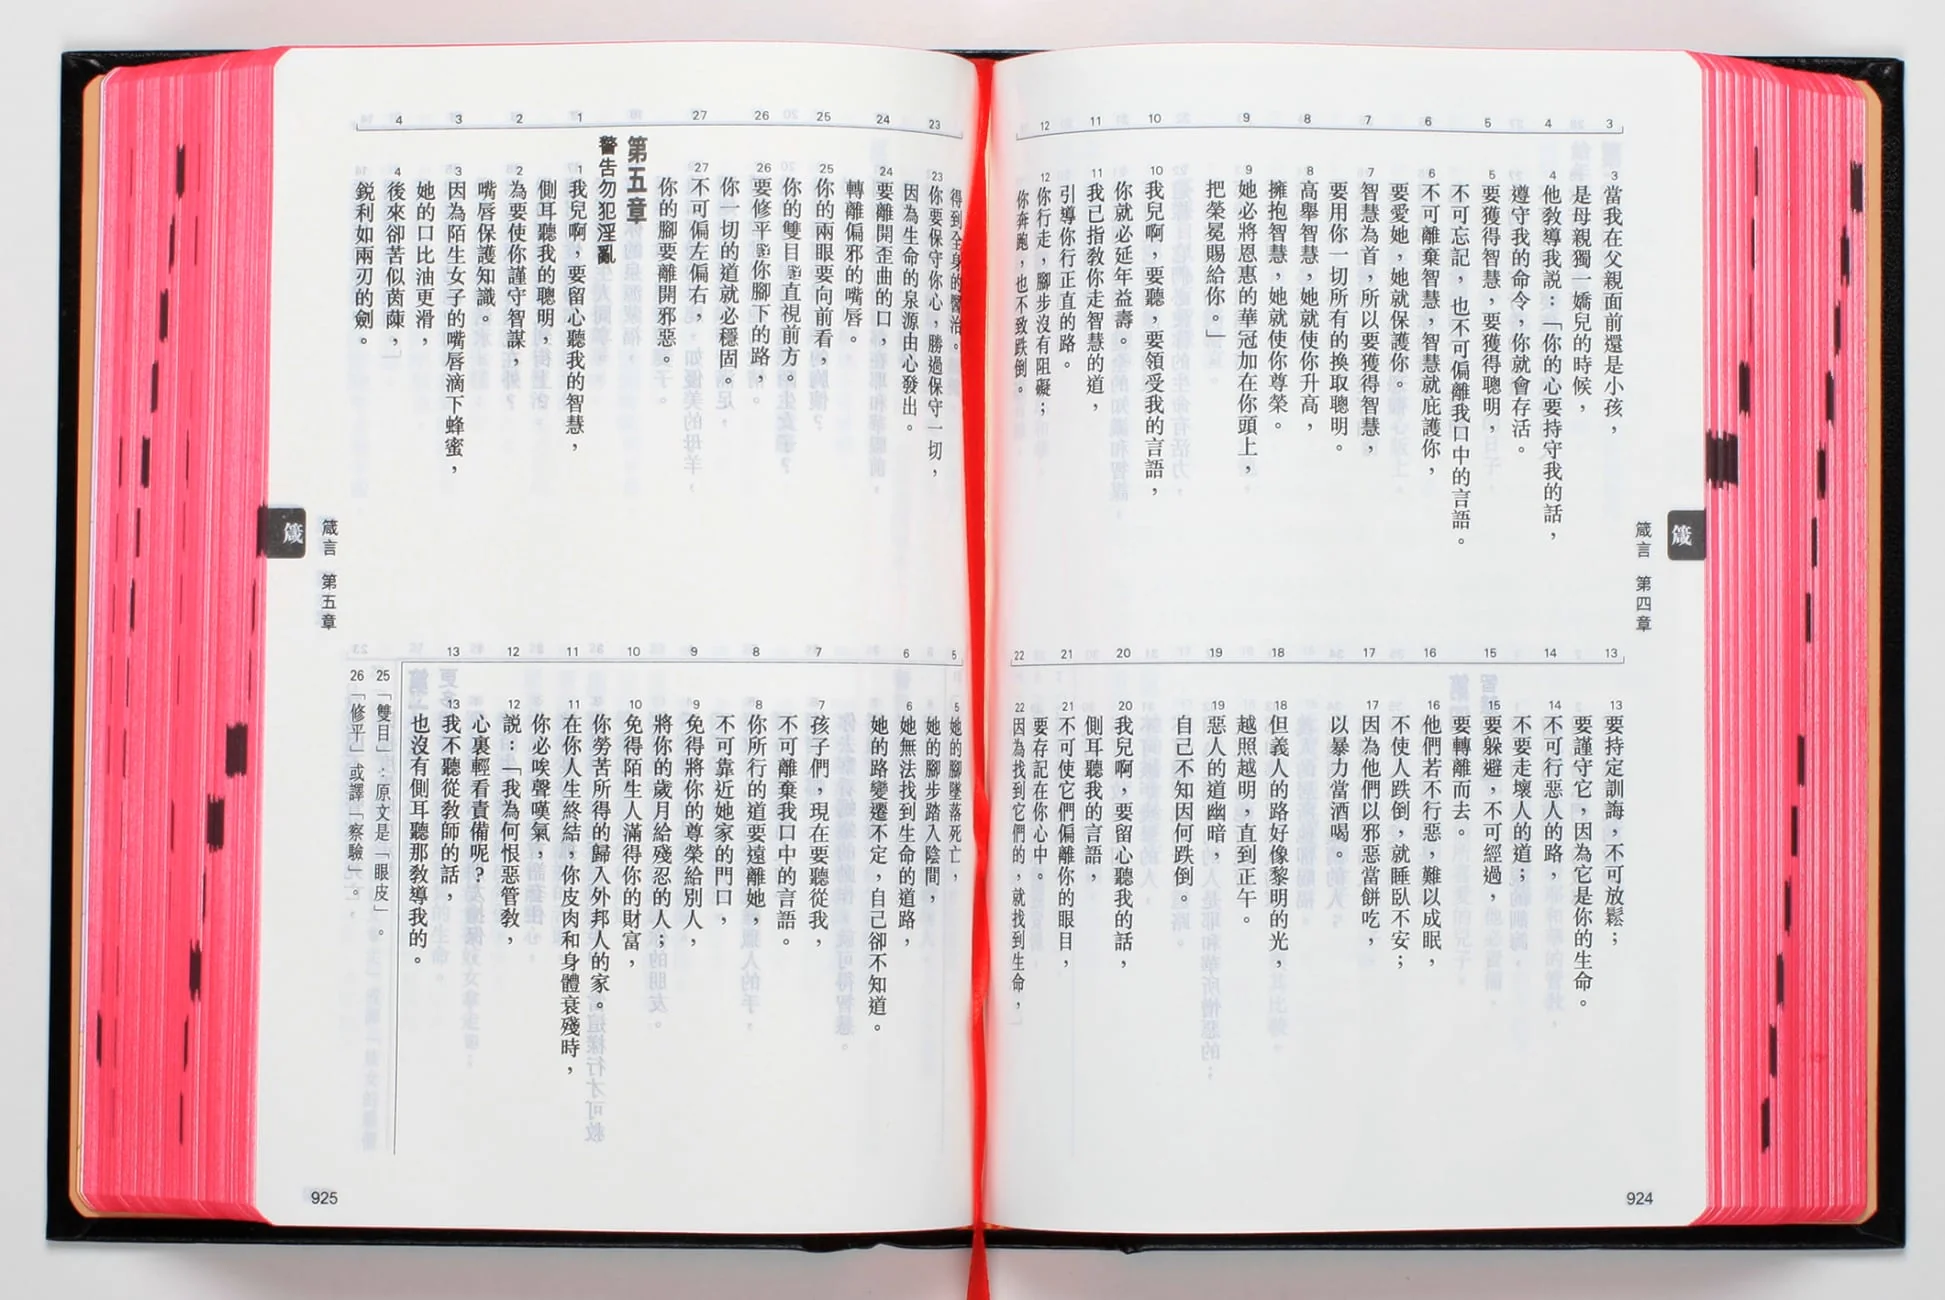 3 4 5 6 7 8 9 10 11 12
3 當我在父親面前還是小孩，
是母親獨一嬌兒的時候，
4 他教導我說：「你的心要持守我的話，
遵守我的命令，你就會存活。
5 要獲得智慧，要獲得聰明，
不可忘記，也不可偏離我口中的言語。
6 不可離棄智慧，智慧就庇護你，
要愛她，她就保護你。
7 智慧為首，所以要獲得智慧，
要用你一切所有的換取聰明。
8 高舉智慧，她就使你升高，
擁抱智慧，她就使你尊榮。
9 她必將恩惠的華冠加在你頭上，
把榮冕賜給你。」
10 我兒啊，要聽，要領受我的言語，
你就必延年益壽。
11 我已指教你走智慧的道，
引導你行正直的路。
12 你行走，腳步沒有阻礙；
你奔跑，也不致跌倒。
箴
箴言 第四章
13 14 15 16 17 18 19 20 21 22
13 要持定訓誨，不可放鬆；
要謹守它，因為它是你的生命。
14 不可行惡人的路，
不要走壞人的道；
15 要躲避，不可經過，
要轉離而去。
16 他們若不行惡，難以成眠，
不使人跌倒，就睡臥不安；
17 因為他們以邪惡當餅吃，
以暴力當酒喝。
18 但義人的路好像黎明的光，
越照越明，直到正午。
19 惡人的道幽暗，
自己不知因何跌倒。
20 我兒啊，要留心聽我的話，
側耳聽我的言語，
21 不可使它們偏離你的眼目，
要存記在你心中。
22 因為找到它們的，就找到生命，
924
23 24 25 26 27 1 2 3 4
得到全身的醫治。
23 你要保守你心，勝過保守一切，
因為生命的泉源由心發出。
24 要離開歪曲的口，
轉離偏邪的嘴唇。
25 你的兩眼要向前看，
你的雙目直視前方。
26 要修平你腳下的路，
你一切的道就必穩固。
27 不可偏左偏右，
你的腳要離開邪惡。
第五章
警告勿犯淫亂
1 我兒啊，要留心聽我的智慧，
側耳聽我的聰明，
2 為要使你謹守智謀，
嘴唇保護知識。
3 因為陌生女子的嘴唇滴下蜂蜜，
她的口比油更滑，
4 後來卻苦似茵蔯，
鋭利如兩刃的劍。
箴
箴言 第五章
5 6 7 8 9 10 11 12 13
5 她的腳墜落死亡，
她的腳步踏入陰間，
6 她無法找到生命的道路，
她的路變遷不定，自己卻不知道。
7 孩子們，現在要聽從我，
不可離棄我口中的言語。
8 你所行的道要遠離她，
不可靠近她家的門口，
9 免得將你的尊榮給別人，
將你的歲月給殘忍的人；
10 免得陌生人滿得你的財富，
你勞苦所得的歸入外邦人的家。
11 在你人生終結，你皮肉和身體衰殘時，
你必唉聲嘆氣，
12 說：「我為何恨惡管教，
心裏輕看責備呢？
13 我不聽從教師的話，
也沒有側耳聽那教導我的。
25 「雙目」：原文是「眼皮」。
26 「修平」或譯「察驗」。
925